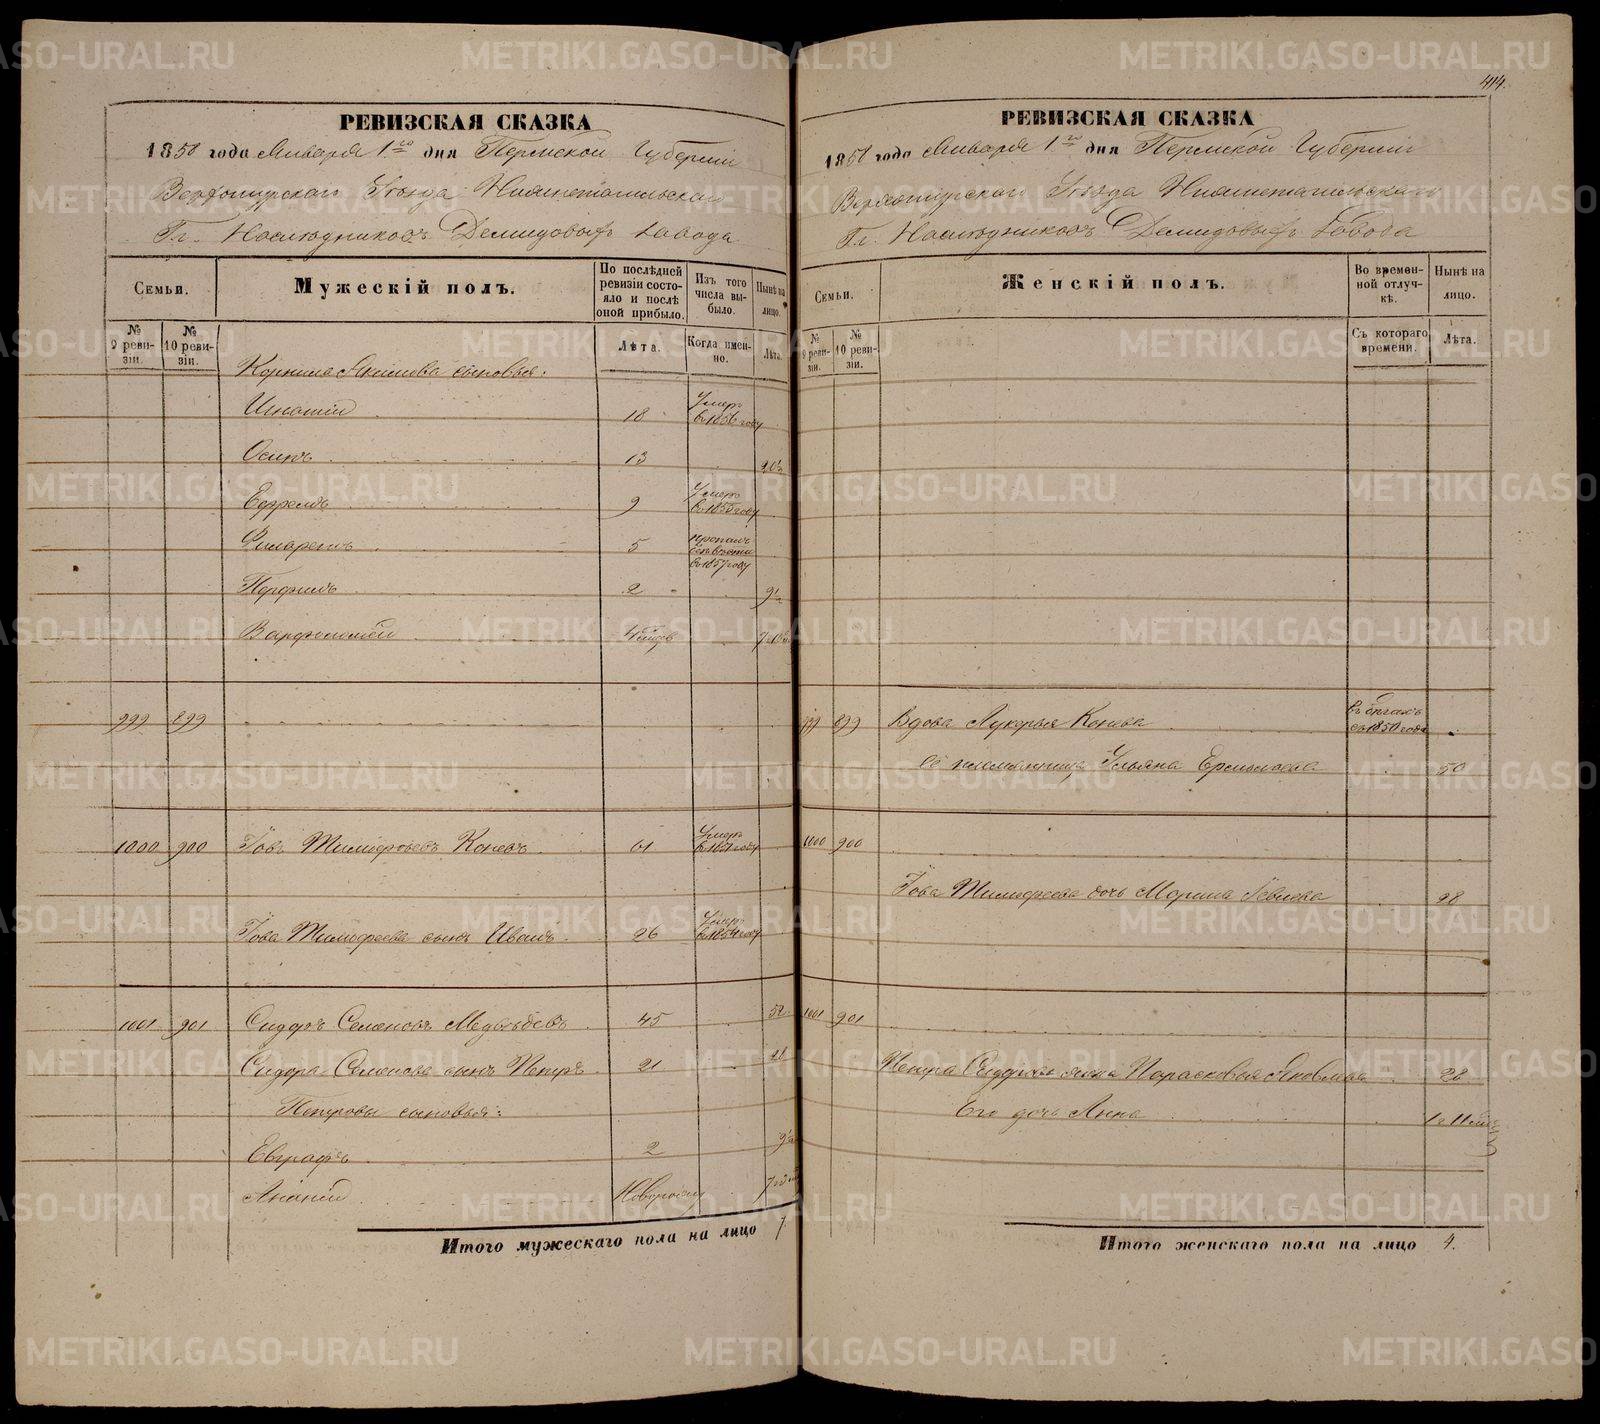 РЕВИЗСКАЯ СКАЗКА
1858 года Января 1го дня Пермской Губерніи
Верхотурскаго Уѣзда Нижнетагильскаго
Гг. Наслѣдниковъ Демидовыхъ Завода
Семьи.
Мужескій полъ.
По послѣдней ревизіи состояло и послѣ оной прибыло.
Изъ того числа выбыло.
Нынѣ на лицо.
№ 9 ревизіи.
№ 10 ревизіи.
Лѣта.
Когда именно.
Лѣта.
Корнила Якимова сыновья:
Игнатій 18 Умеръ въ 1856 году
Осипъ 13
Ефремъ 9 Умеръ въ 1855 году
Филаретъ 5 въ 1857 году
Порфилъ 2 9½
Варфоломей
999 899
1000 900 Іовъ Тимофеевъ Коневъ 61 Умеръ
Іова Тимофеева сынъ Иванъ 26 Умеръ въ 1854 году
1001 901 Сидоръ Семеновъ Медвѣдевъ 45
Сидора Семенова сынъ Петръ 21
Петровы сыновья:
Евграфъ 2
Ананій
Итого мужескаго пола на лицо 7
414.
РЕВИЗСКАЯ СКАЗКА
1858 года Января 1го дня Пермской Губерніи
Верхотурскаго Уѣзда Нижнетагильскаго
Гг. Наслѣдниковъ Демидовыхъ Завода
Семьи.
Женскій полъ.
Во временной отлучкѣ.
Нынѣ на лицо.
№ 9 ревизіи.
№ 10 ревизіи.
Съ котораго времени.
Лѣта.
999 899 Вдова Лукерья Конева въ бѣгахъ
Ея племянница Ульяна Ермолаева 50
1000 900
Іова Тимофеева дочь Марина Іовлева 28
1001 901
Петра Сидорова жена Парасковья Яковлева 28
Его дочь Анна
Итого женскаго пола на лицо 4.
METRIKI.GASO-URAL.RU